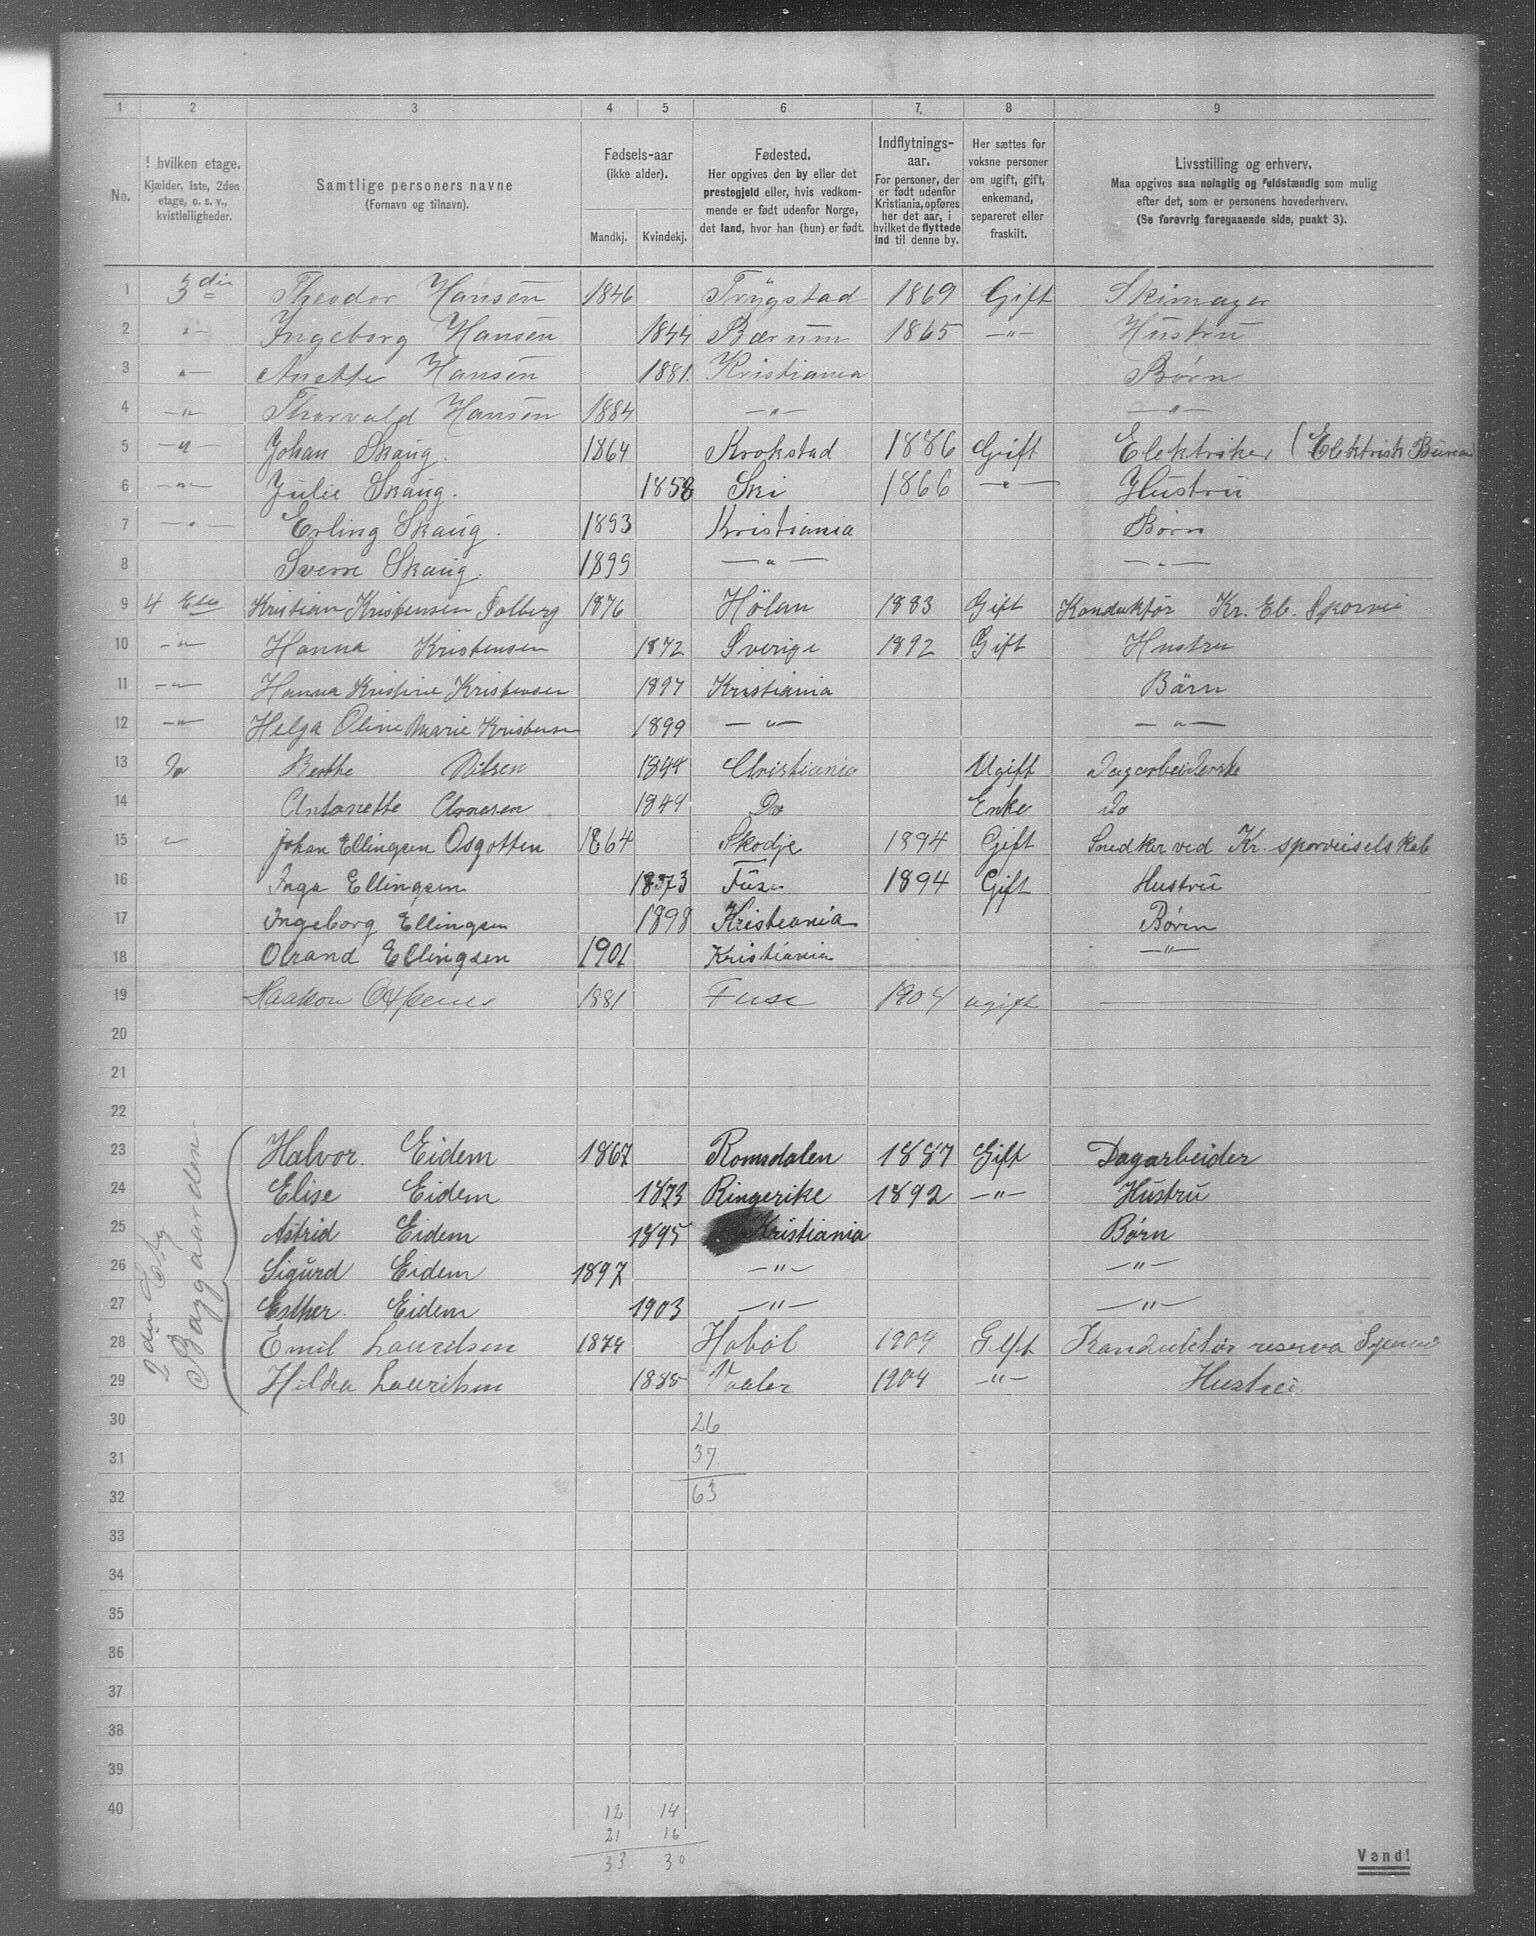 1 2 3 4 5 6 7. 8 9
No.
I hvilken etage.
Kjælder, 1ste, 2den etage, o. s. v., kvistleiligheder.
Samtlige personers navne
(Fornavn og tilnavn).
Fødsels-aar
(ikke alder).
Mandkj. Kvindekj.
Fødested.
Her opgives den by eller det prestegjeld eller, hvis vedkommende er født udenfor Norge, det land, hvor han (hun) er født.
Indflytnings-aar.
For personer, der er født udenfor Kristiania, opføres her det aar, i hvilket de flyttede ind til denne by.
Her sættes for voksne personer om ugift, gift, enkemand, separeret eller fraskilt.
Livsstilling og erhverv.
Maa opgives saa nøiagtig og fuldstændig som mulig efter det, som er personens hovederhverv.
(Se forøvrig foregaaende side, punkt 3).
1 3die Theodor Hansen 1846 Trygstad 1869 Gift Skimager
2 -"- Ingeborg Hansen 1844 Bærum 1865 -"- Hustru
3 -"- Anette Hansen 1881. Kristiania Børn
4 -"- Thorvald Hansen 1884 -"- -"-
5 -"- Johan Skaug. 1864 Krokstad 1886 Gift Elektriker (Elektrisk Bureau
6 -"- Julie Skaug. 1858 Ski 1866 -"- Hustru
7 -"- Erling Skaug. 1893 Kristiania Børn
8 Sverre Skaug. 1899 -"- -"-
9 4 Etg Kristian Kristensen Solberg 1876 Hölan 1883 Gift Konduktør Kr. El. Sporvei
10 -"- Hanna Kristensen 1872 Sverige 1892 Gift Hustru
11 -"- Hanna Kristine Kristensen 1897 Kristiania Børn
12 -"- Helga Oline Marie Kristensen 1899 -"- -"-
13 Do Berthe Nilsen 1844 Christiania Ugift Dagarbeiderske
14 Antonette 1849 Do Enke Do
15 " Johan Ellingsen Osgotten 1864 Skodje 1894 Gift Snedker ved Kr. sporveiselskab
16 Inga Ellingsen 1873 Fuse 1894 Gift Hustru
17 Ingeborg Ellingsen 1898 Kristiania Børn
18 Olrand Ellingsen 1901 Kristiania -"-
19 Haakon 1881 Fuse 1904 ugift
20
21
22
2den Etg Baggaarden
23 Halvor. Eidem 1867 Romsdalen 1887 Gift Dagarbeider
24 Elise Eidem 1873 Ringerike 1892 -"- Hustru
25 Astrid Eidem 1895 Kristiania Børn
26 Sigurd Eidem 1897 -"- -"-
27 Esther. Eidem 1903 -"- -"-
28 Emil Lauritsen 1874 Høbøl 1904 Gift Konduktør reserva
29 Hilda Lauritsen 1885 Vaaler 1904 -"- Hustru
30 26
31 37
32 63
33
34
35
36
37
38
39
40 12 14
21 16
33 30
Vend!